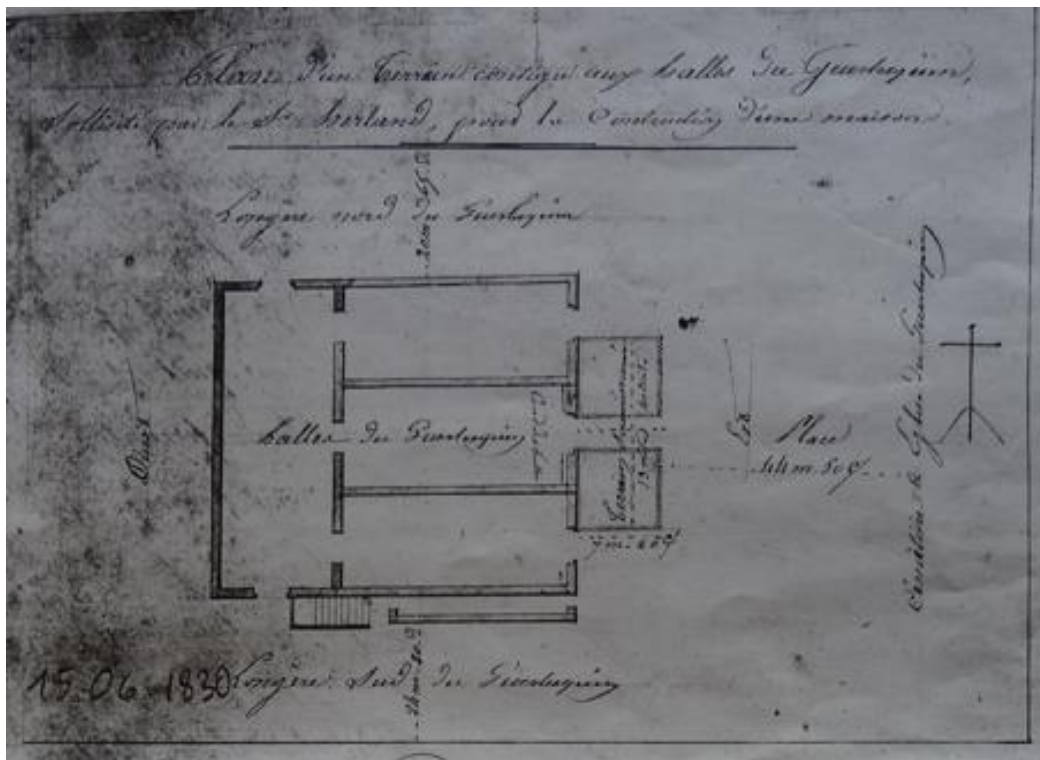 Plan d'un Terrain contigu aux halles du Guerlesquin,
Sollicité par le Sr herland, pour la Construction d'une maison.
20 m
Longère nord du Guerlesquin
Ouest
halles du Guerlesquin
Terrain
Est
Place
44 m. 50 c.
7 m. 20 c.
Cimetière de l'église du Guerlesquin
15-06-1830
Longère Sud du Guerlesquin